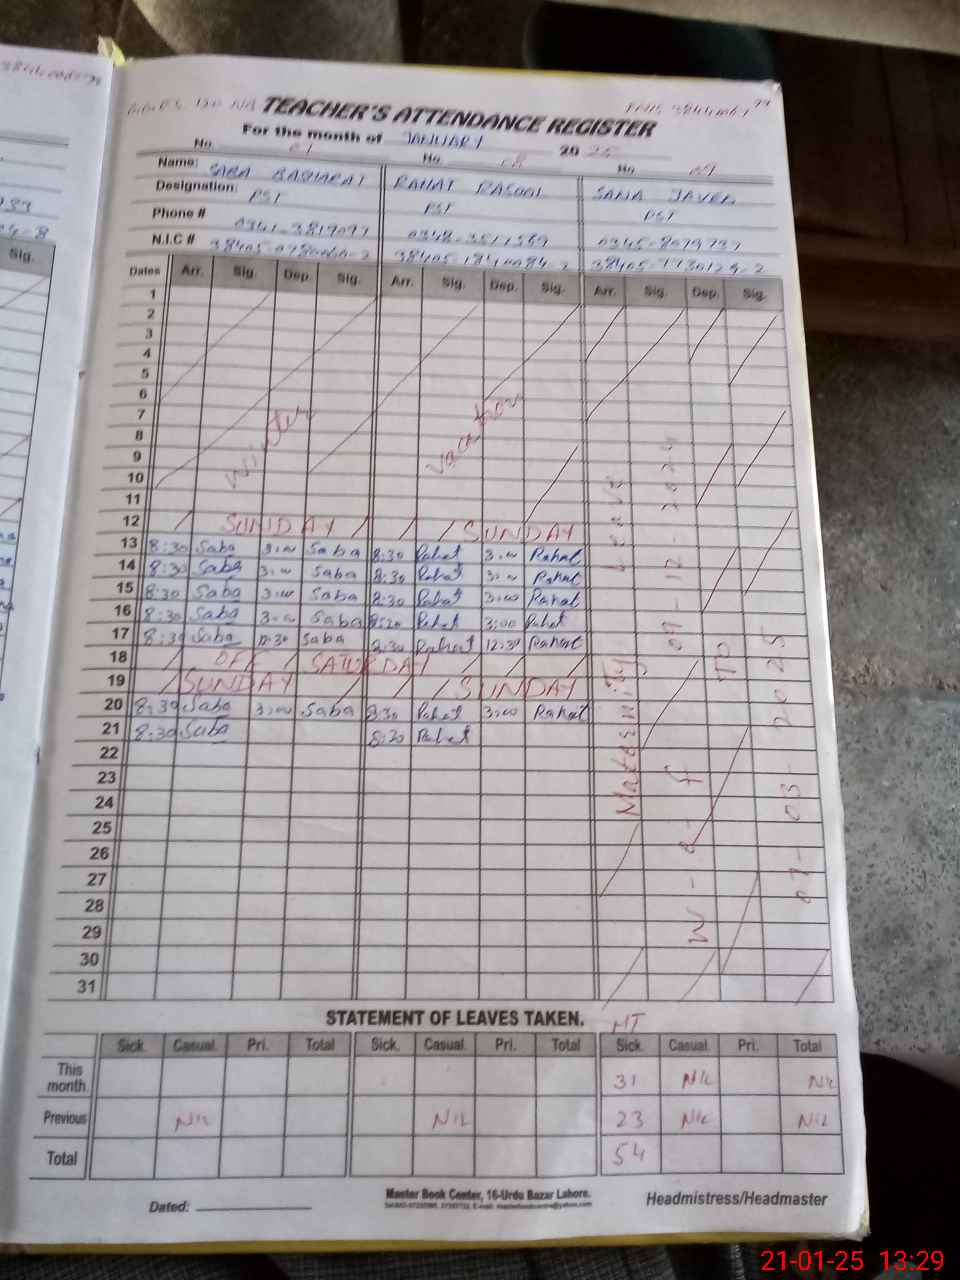 TEACHER'S ATTENDANCE REGISTER
For the month of JANUARY 2025
No. No. No.
Name: SABA BASHARAT RAHAT RASOOL SANA JAVED
Designation: PST PST PST
Phone #
N.I.C #
Dates Arr. Sig. Dep. Sig. Arr. Sig. Dep. Sig. Arr. Sig. Dep. Sig.
1
2
3
4
5
6
7
8
9
10
11
Winter vacation
12 SUNDAY SUNDAY
13 8:30 Saba 3:00 Saba 8:30 Rahat 3:00 Rahat
14 8:30 Saba 3:00 Saba 8:30 Rahat 3:00 Rahat
15 8:30 Saba 3:00 Saba 8:30 Rahat 3:00 Rahat
16 8:30 Saba 3:00 Saba 8:30 Rahat 3:00 Rahat
17 8:30 Saba 12:30 Saba 8:30 Rahat 12:30 Rahat
18 OFF SATURDAY
19 SUNDAY SUNDAY
20 8:30 Saba 3:00 Saba 8:30 Rahat 3:00 Rahat
21 8:30 Saba 8:30 Rahat
22
23
24
25
26
27
28
29
30
31
Maternity Leave
W-e-f 09-12-2024
TO
07-03-2025
STATEMENT OF LEAVES TAKEN.
MT
Sick. Casual. Pri. Total Sick. Casual. Pri. Total Sick. Casual. Pri. Total
This month. 31 Nil Nil
Previous Nil Nil 23 Nil Nil
Total 54
Dated:
Master Book Center, 16-Urdu Bazar Lahore.
Headmistress/Headmaster
Sig.
21-01-25 13:29